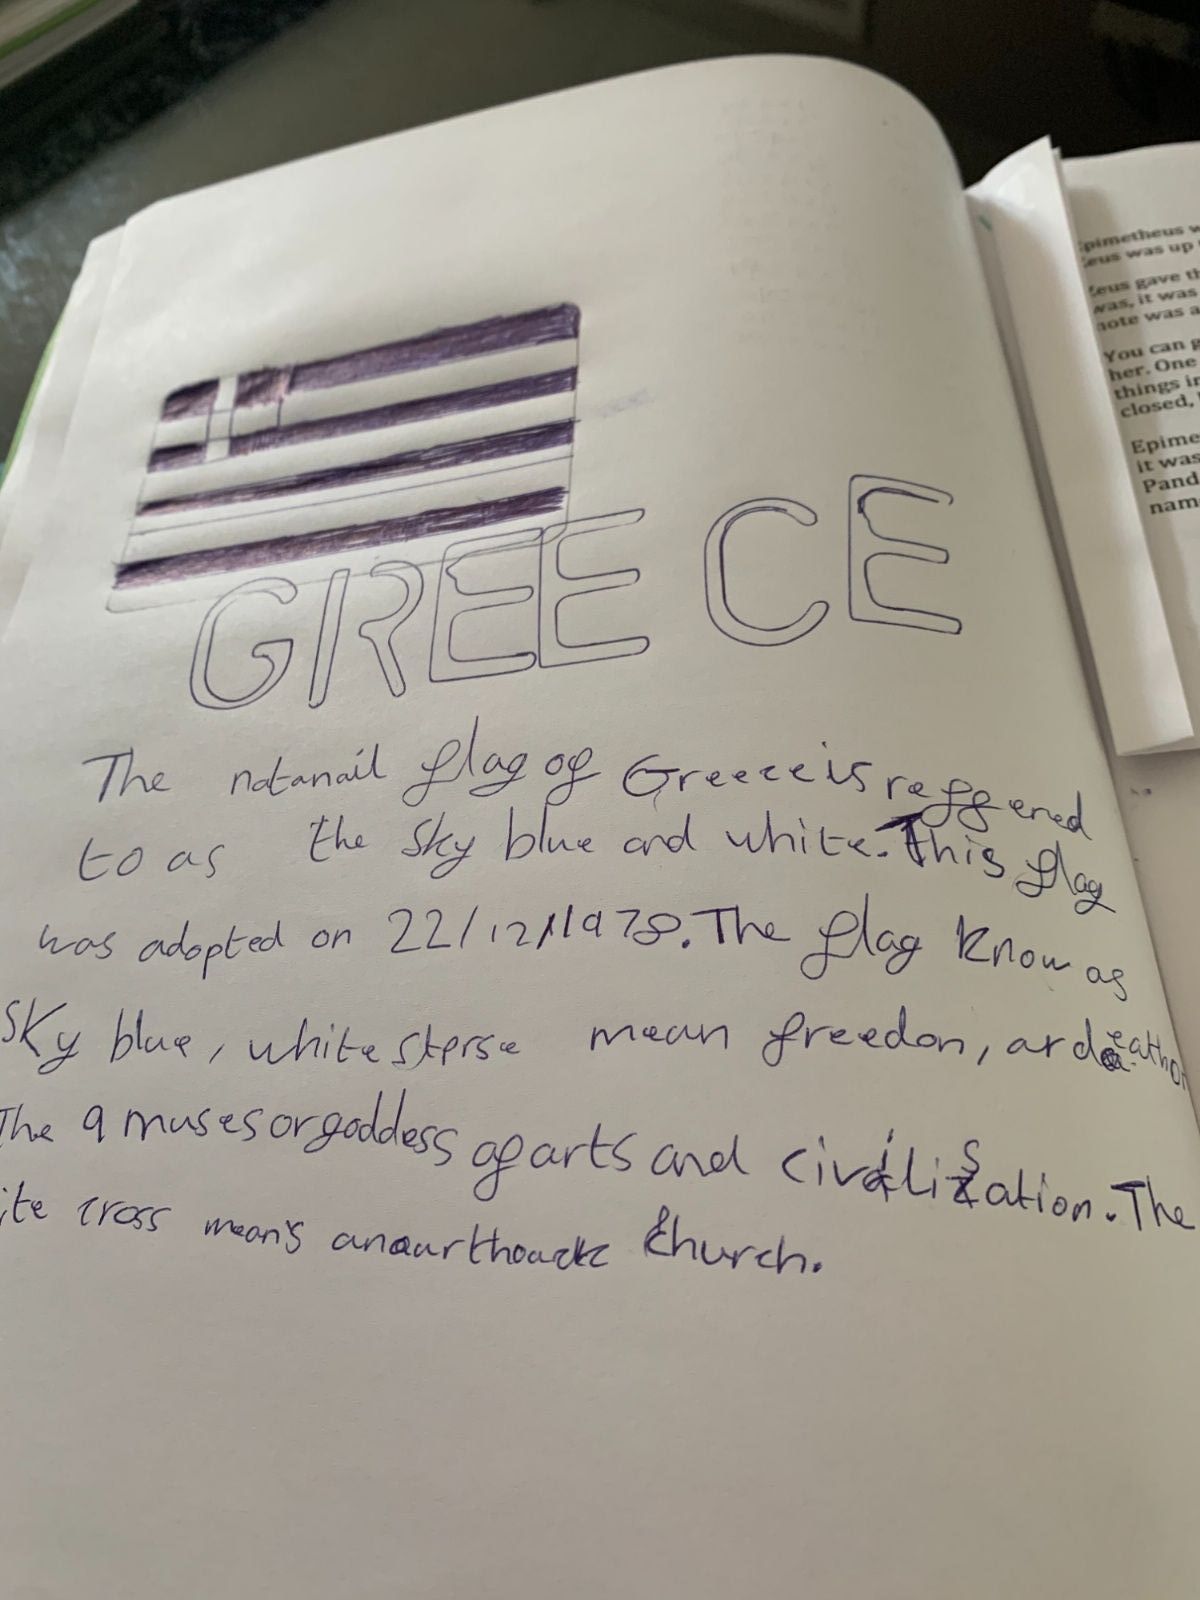 GREECE
The natanail flag of Greece is reffered
to as the sky blue and white. This flag
was adopted on 22/12/1978. The flag know as
sky blue, white sterse mean freedon, or death or
The 9 muses or goddess of arts and civilisation. The
ite cross mean's church.
pimetheus w
eus was up
Zeus gave th
was, it was
note was a
You can g
her. One
things in
closed,
Epime
it was
Pand
nam